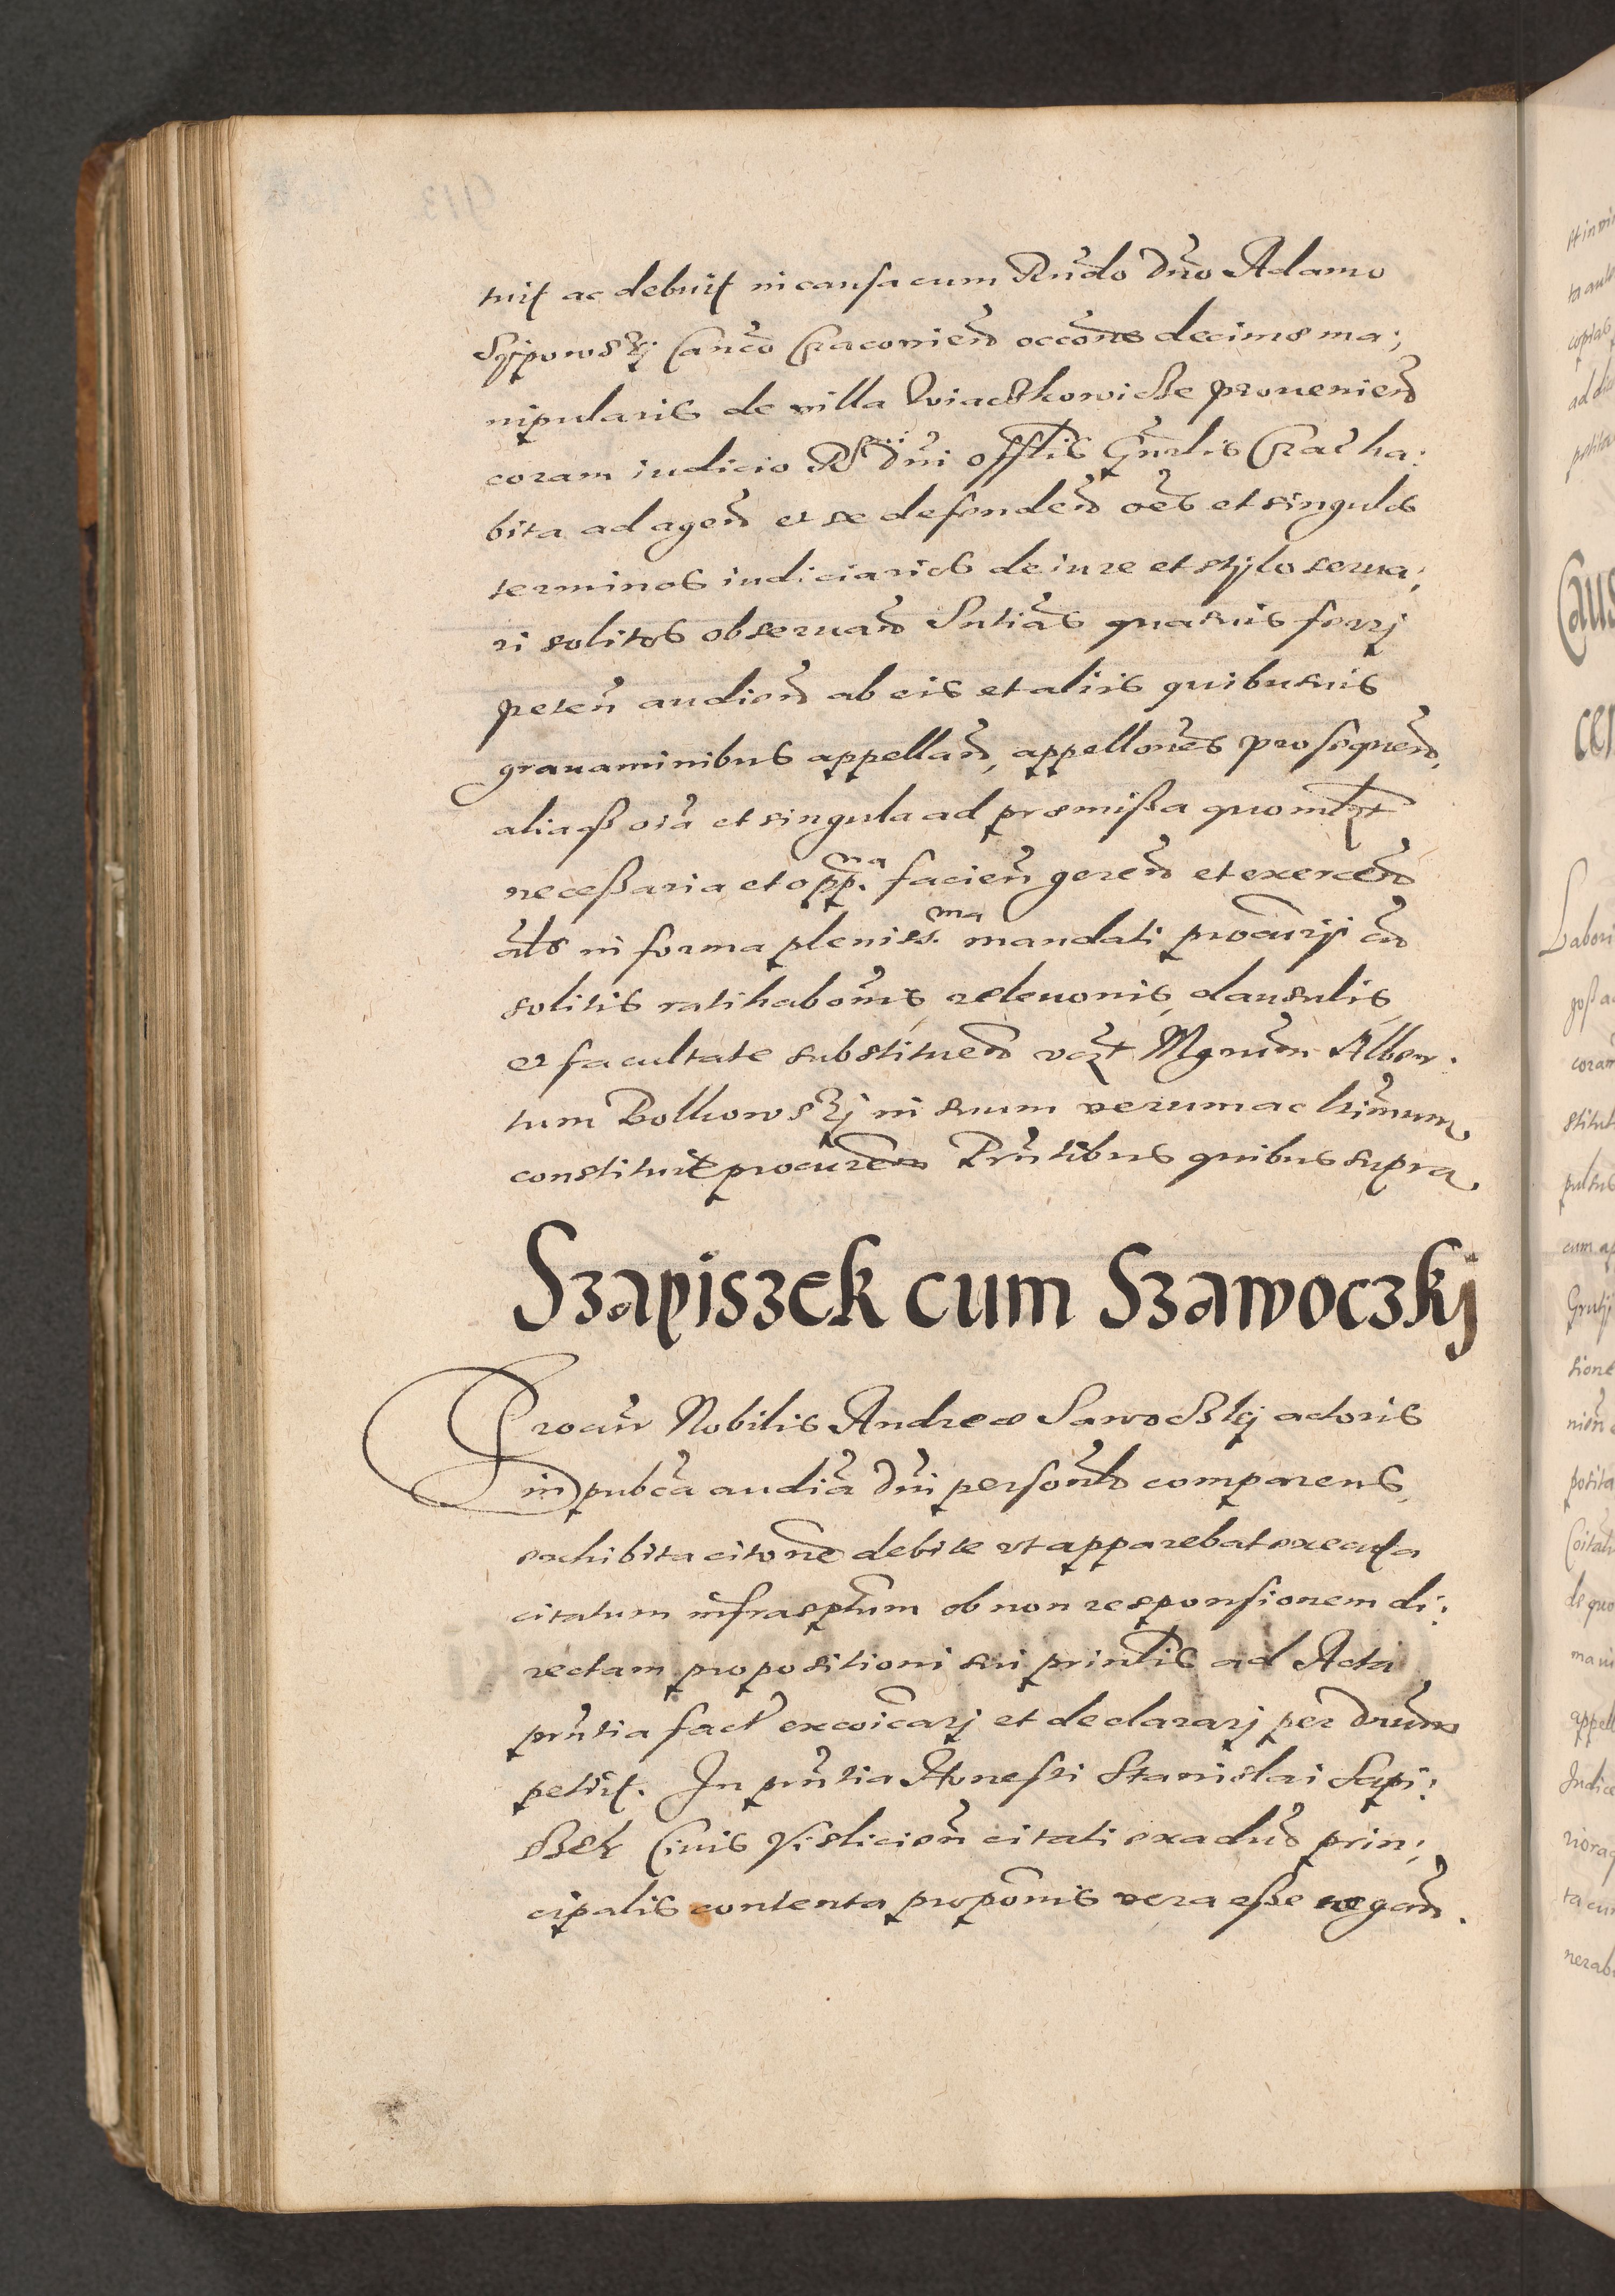 tuit ac debuit in causa cum Rndo Dno Adamo
Canco Cracovien occone decimae ma:
nipularis de villa provenien
coram iudicio Rdi dni offlis Gnrlis Crac ha:
bita ad agen et se defenden oes et singulos
terminos iudiciarios de iure et stylo serua:
ri solitos obseruan Sntias quasuis ferrj
peten audien ab eis et aliis quibusuis
grauaminibus appellan, appellones prosequen,
aliaqß oia et singula ad praemißa quomlt
neceßaria et oppna facien geren et exercen
als in forma plenissma mandati procurij cum
solitis ratihabonis, releuonis, clausulis,
et facultate substituen vezt Mgnum Alber:
tum Bolkowskj in suum verum ac ltimum
constituit procurem Pntibus quibus supra
Szapiszek cum Szawoczkj
Procur Nobilis Andreae Sawoczkj actoris
in pubca audia Dni personlr comparens,
exhibita citone debite vt apparebat executa
citatum infrasptum ob non responsionem di:
rectam propositioni sui prinlis ad Acta
pntia fact excoicarj et declararj per Dnum
petiit. In pntia Honesti Stanislai Sapi:
szek Ciuis Vislicien citati ex aduo prin:
cipalis contenta propomis vera eße negan.